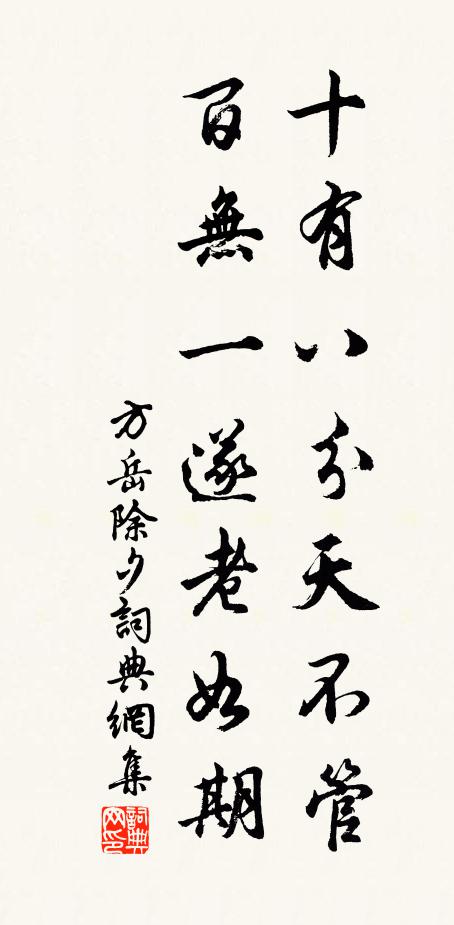 十有八分天不管
百無一遂老如期
方岳除夕詞典網集
詞典网印